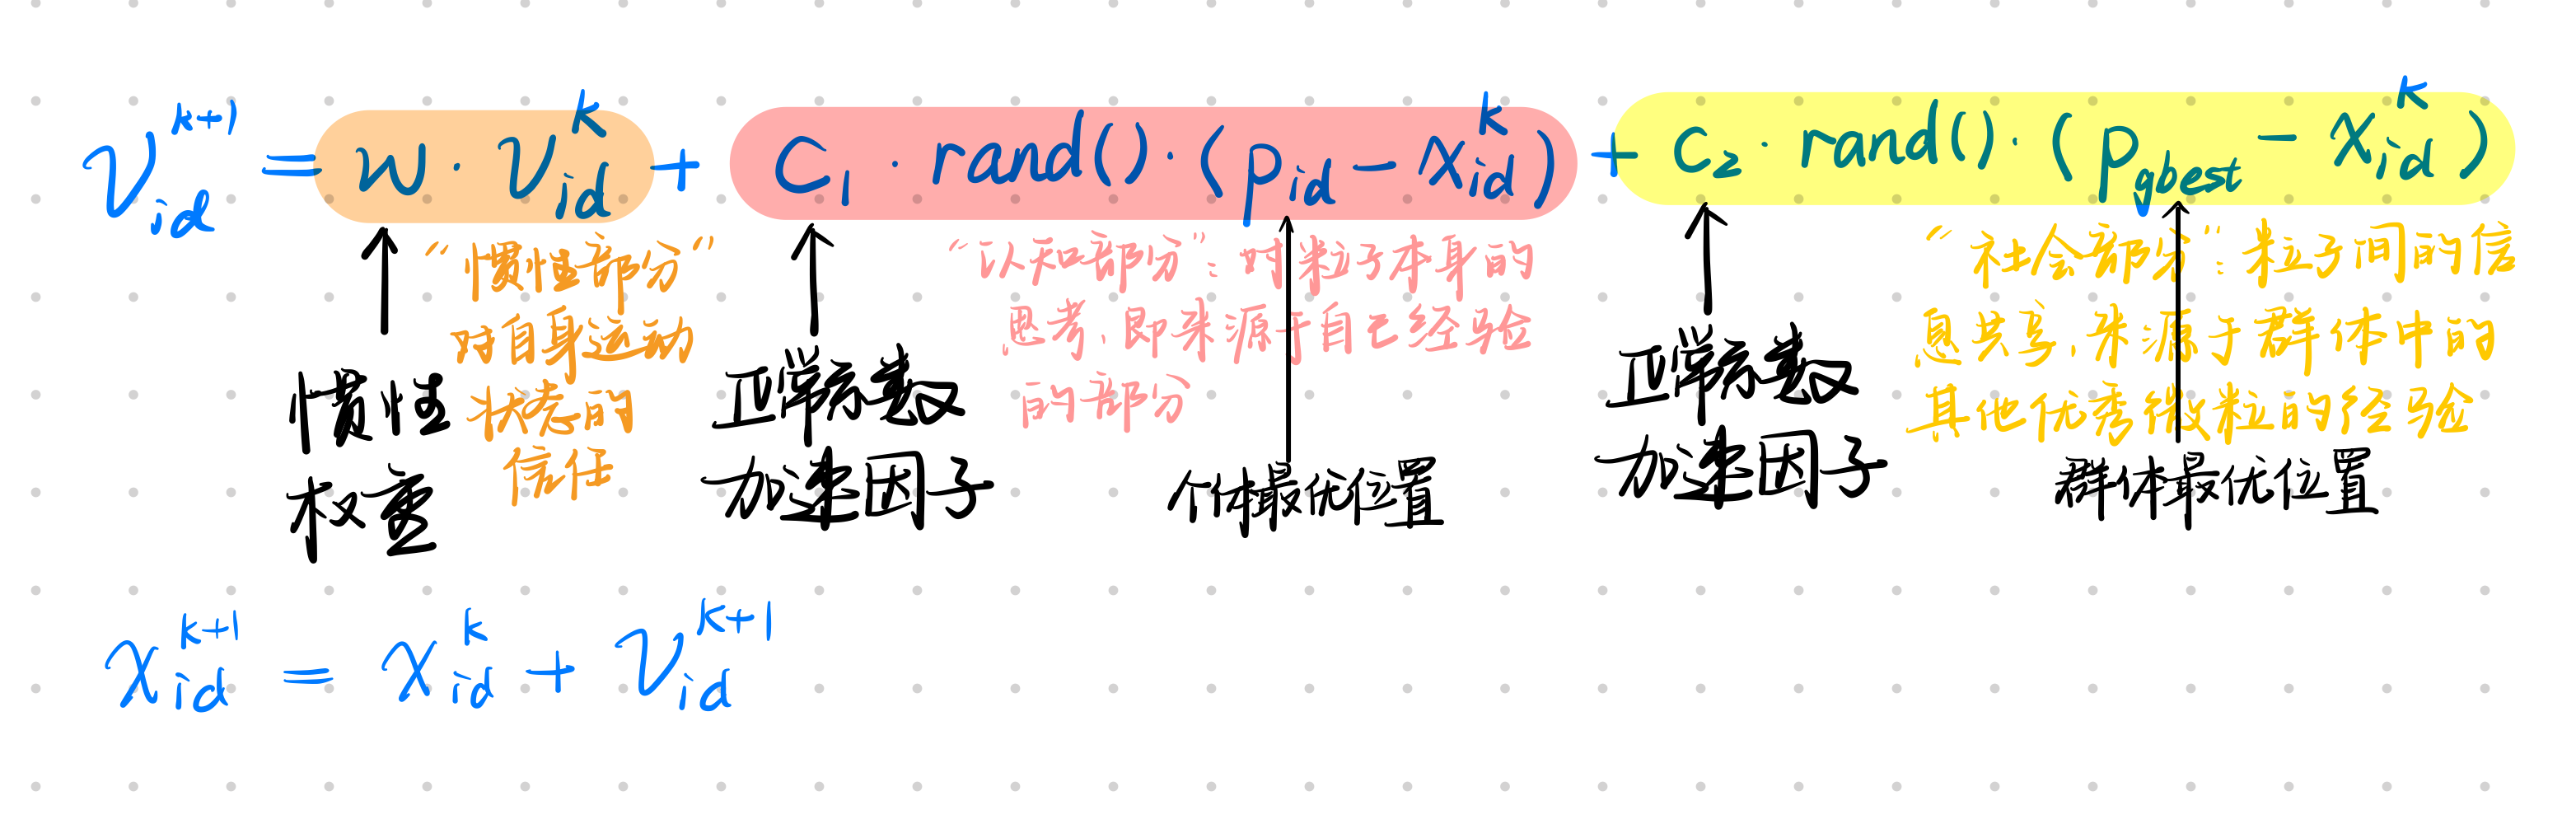 v_{id}^{k+1} = w · v_{id}^{k} + c_1 · rand() · (p_{id} - x_{id}^{k}) + c_2 · rand() · (p_{gbest} - x_{id}^{k})
惯性
权重
“惯性部分”
对自身运动
状态的
信任
正常系数
加速因子
“认知部分”：对粒子本身的
思考，即来源于自己经验
的部分
个体最优位置
正常系数
加速因子
“社会部分”：粒子间的信
息共享，来源于群体中的
其他优秀微粒的经验
群体最优位置
x_{id}^{k+1} = x_{id}^{k} + v_{id}^{k+1}